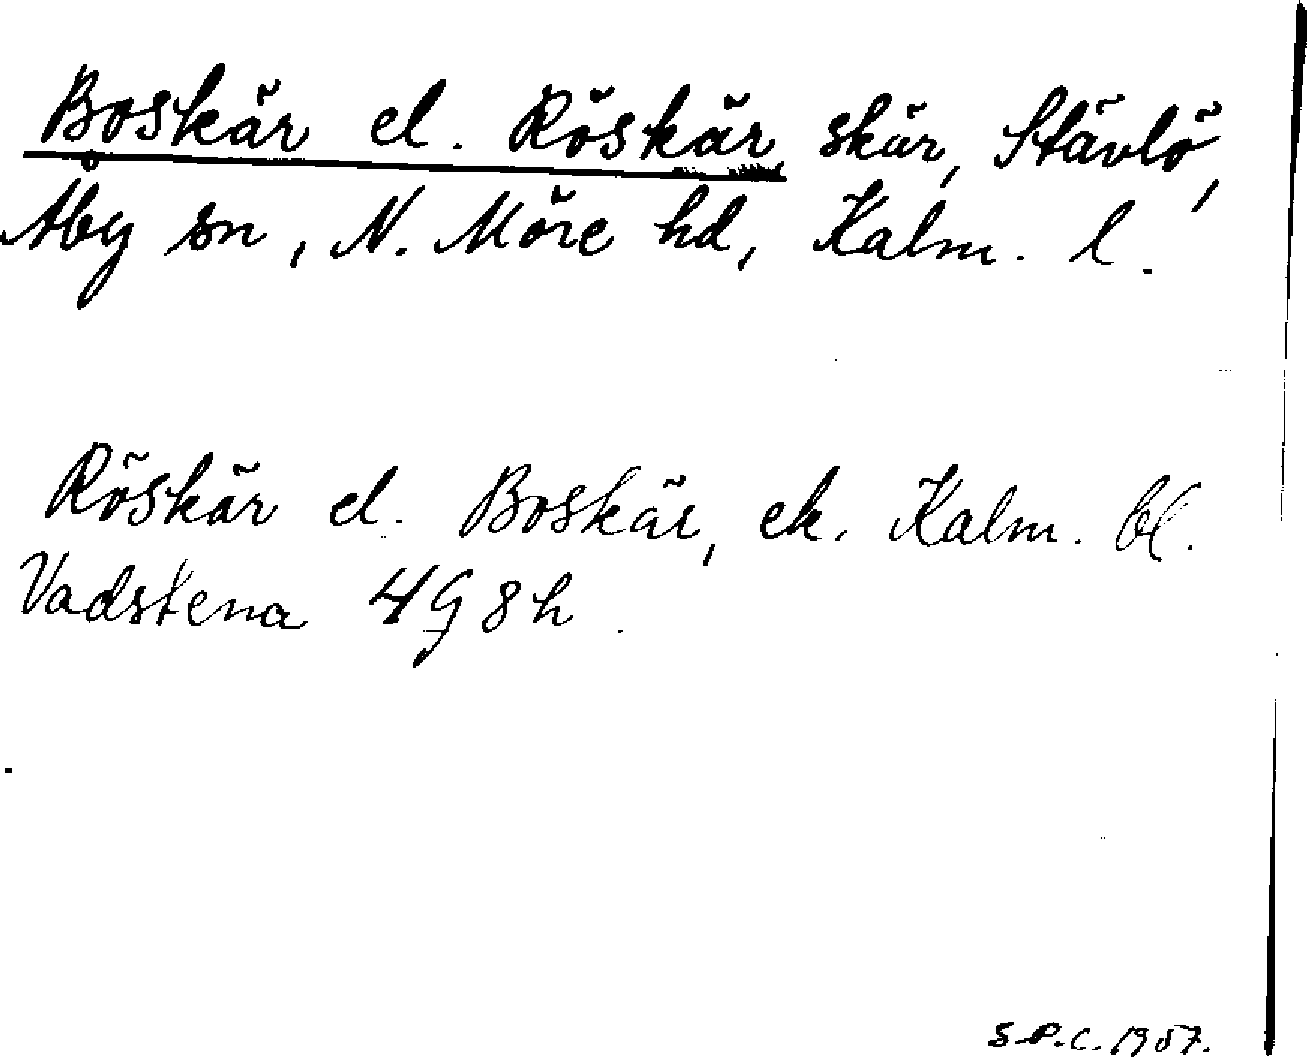 Boskär el. Röskär skär, Stävlö,
Åby sn, N. Möre hd, Kalm. l.
Röskär el. Boskär, ek. Kalm. bl.
Vadstena 4G 8h.
S.P.C. 1957.